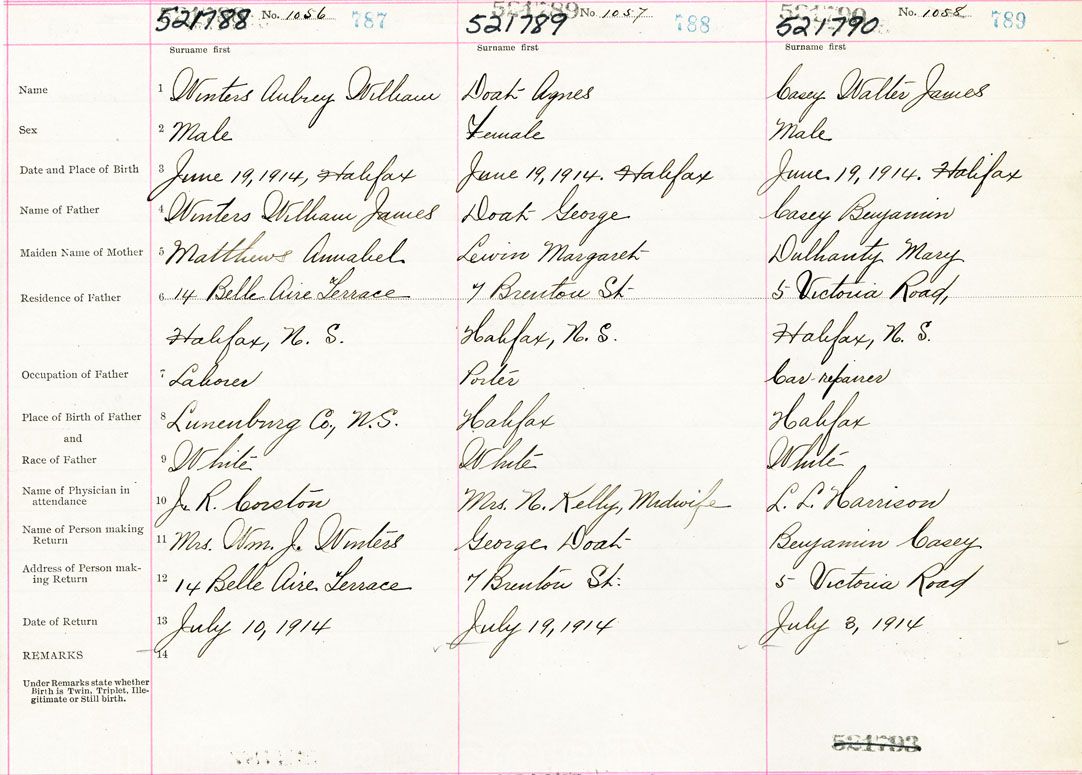 521788 No. 1056 787 521789 521789 No. 1057 788 521790 521790 No. 1058 789
Surname first Surname first Surname first
Name 1 Winters Aubrey William Doat Agnes Casey Walter James
Sex 2 Male Female Male
Date and Place of Birth 3 June 19, 1914, Halifax June 19, 1914. Halifax June 19, 1914. Halifax
Name of Father 4 Winters William James Doat George Casey Benjamin
Maiden Name of Mother 5 Matthews Annabel Lewin Margaret Dulhanty Mary
Residence of Father 6 14 Belle Aire Terrace 7 Brenton St. 5 Victoria Road,
Halifax, N. S. Halifax, N. S. Halifax, N. S.
Occupation of Father 7 Laborer Porter Car repairer
Place of Birth of Father 8 Lunenburg Co., N.S. Halifax Halifax
and
Race of Father 9 White White White
Name of Physician in
attendance 10 J. R. Corston Mrs. N. Kelly, Midwife L. L. Harrison
Name of Person making
Return 11 Mrs. Wm. J. Winters George Doat Benjamin Casey
Address of Person mak-
ing Return 12 14 Belle Aire Terrace 7 Brenton St. 5 Victoria Road
Date of Return 13 July 10, 1914 July 19, 1914 July 3, 1914
REMARKS 14
Under Remarks state whether
Birth is Twin, Triplet, Ille-
gitimate or Still birth.
521793